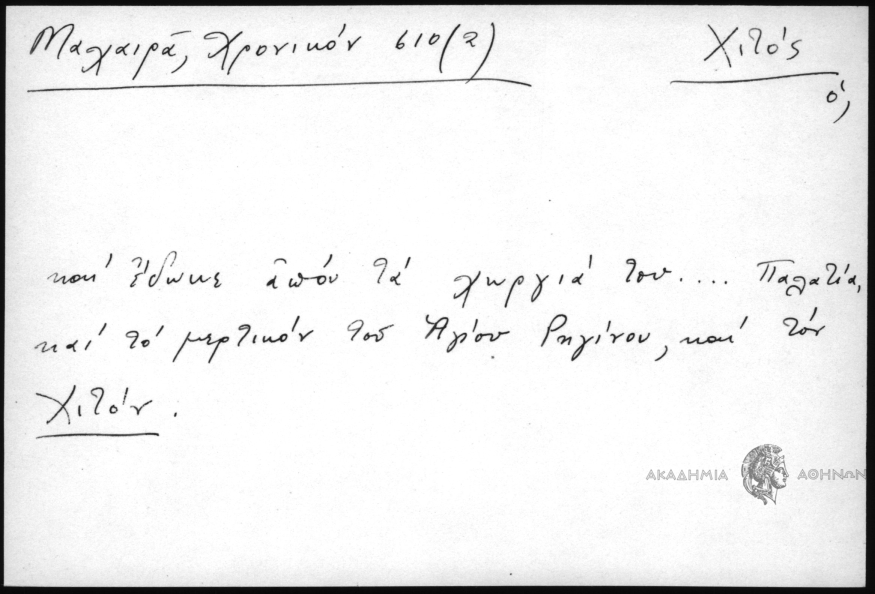 Μαχαιρᾶ, Χρονικόν 610(2) Χιτός
ὁ,
καί ἔδωκε ἀπόν τά χωργιά του.... Παλατία,
καί τό μερτικόν τοῦ Ἁγίου Ρηγίνου, καί τόν
Χιτόν.
ΑΚΑΔΗΜΙΑ ΑΘΗΝΩΝ